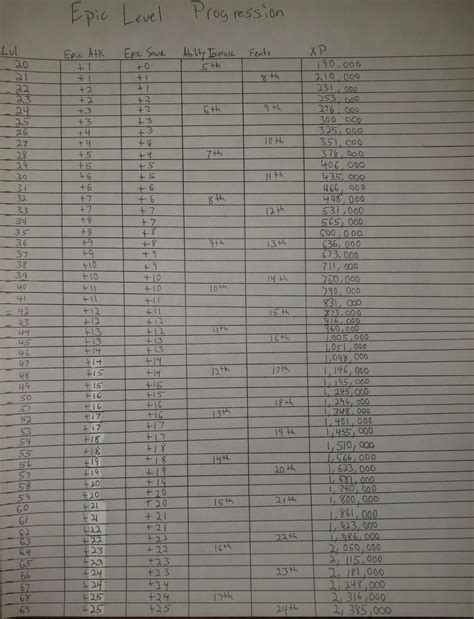 Epic Level Progression
Lvl Epic Atk Epic Save Ability Increase Feats XP
20 +1 +0 5th 190,000
21 +1 +1 8th 210,000
22 +2 +1 231,000
23 +2 +2 253,000
24 +3 +2 6th 9th 276,000
25 +3 +3 300,000
26 +4 +3 325,000
27 +4 +4 10th 351,000
28 +5 +4 7th 378,000
29 +5 +5 406,000
30 +6 +5 11th 435,000
31 +6 +6 466,000
32 +7 +6 8th 498,000
33 +7 +7 12th 531,000
34 +8 +7 565,000
35 +8 +8 600,000
36 +9 +8 9th 13th 636,000
37 +9 +9 673,000
38 +10 +9 711,000
39 +10 +10 14th 750,000
40 +11 +10 10th 790,000
41 +11 +11 831,000
42 +12 +11 15th 873,000
43 +12 +12 916,000
44 +13 +12 11th 960,000
45 +13 +13 16th 1,005,000
46 +14 +13 1,051,000
47 +14 +14 1,098,000
48 +15 +14 12th 17th 1,146,000
49 +15 +15 1,195,000
50 +16 +15 1,245,000
51 +16 +16 18th 1,296,000
52 +17 +16 13th 1,348,000
53 +17 +17 1,401,000
54 +18 +17 19th 1,455,000
55 +18 +18 1,510,000
56 +19 +18 14th 1,566,000
57 +19 +19 20th 1,623,000
58 +20 +19 1,681,000
59 +20 +20 1,740,000
60 +21 +20 15th 21th 1,800,000
61 +21 +21 1,861,000
62 +22 +21 1,923,000
63 +22 +22 22th 1,986,000
64 +23 +22 16th 2,050,000
65 +23 +23 2,115,000
66 +24 +23 23th 2,181,000
67 +24 +24 2,248,000
68 +25 +24 17th 2,316,000
69 +25 +25 24th 2,385,000